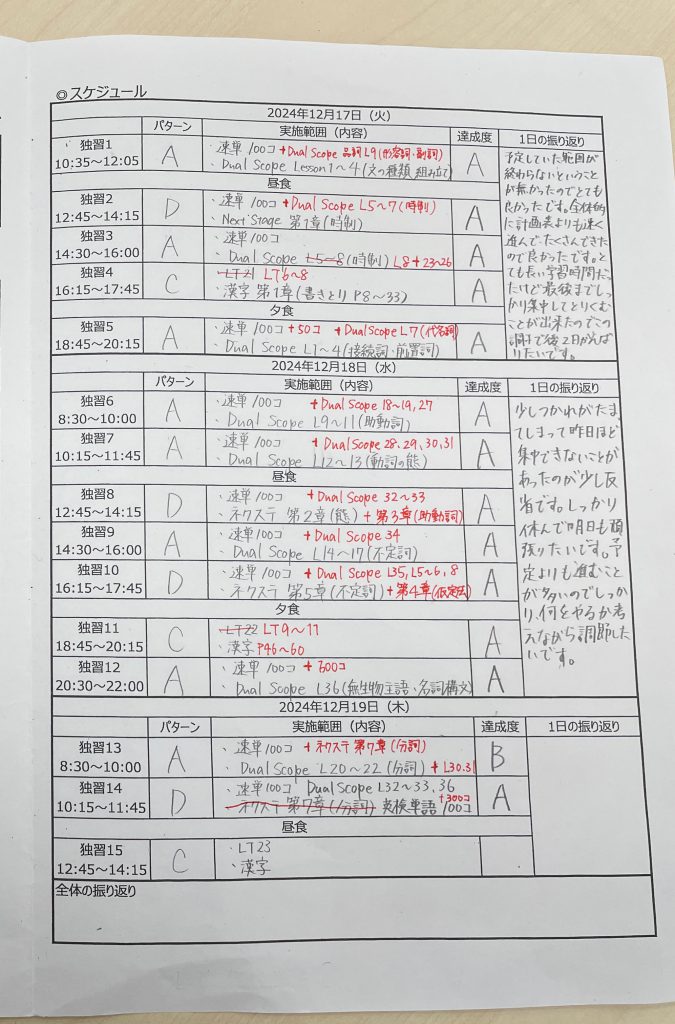 ◎スケジュール
2024年12月17日（火）
パターン 実施範囲（内容） 達成度 1日の振り返り
独習1
10:35～12:05
A
・速単 100コ +Dual Scope 品詞 L9 (形容詞・副詞)
・Dual Scope Lesson1～4 (文の種類 組み立て)
A
昼食
独習2
12:45～14:15
D
・速単 100コ +Dual Scope L5～7 (時制)
・Next Stage 第1章 (時制)
A
独習3
14:30～16:00
A
・速単 100コ
・Dual Scope L5～8 (時制) L8+23～26
A
独習4
16:15～17:45
C
・LT21 LT6～8
・漢字 第1章 (書きとり P8～33)
A
夕食
独習5
18:45～20:15
A
・速単 100コ +50コ +Dual Scope L7 (代名詞)
・Dual Scope L1～4 (接続詞・前置詞)
A
予定していた範囲が
終わらないということ
が無かったのでとても
良かったです。全体的
に計画表よりも速く
進んで、たくさんできた
ので良かったです。と
ても長い学習時間だっ
たけど最後までしっ
かり集中してとりくむ
ことが出来たのでこの
調子で後2日がんば
りたいです。
2024年12月18日（水）
パターン 実施範囲（内容） 達成度 1日の振り返り
独習6
8:30～10:00
A
・速単 100コ +Dual Scope 18～19, 27
・Dual Scope L9～11 (助動詞)
A
独習7
10:15～11:45
A
・速単 100コ +Dual Scope 28. 29, 30, 31
・Dual Scope L12～13 (動詞の態)
A
昼食
独習8
12:45～14:15
D
・速単 100コ +Dual Scope 32～33
・ネクステ 第2章 (態) + 第3章 (助動詞)
A
独習9
14:30～16:00
A
・速単 100コ +Dual Scope 34
・Dual Scope L14～17 (不定詞)
A
独習10
16:15～17:45
D
・速単 100コ +Dual Scope L35, L5～6, 8
・ネクステ 第5章 (不定詞) + 第4章 (仮定法)
A
夕食
独習11
18:45～20:15
C
・LT22 LT9～11
・漢字 P46～60
A
独習12
20:30～22:00
A
・速単 100コ
・Dual Scope L36 (無生物主語、名詞構文)
A
少しつかれがたまっ
てしまって昨日ほど
集中できないことが
あったのが少し反
省です。しっかり
休んで明日も頑
張りたいです。予
定よりも進むこと
が多いのでしっか
り、何をやるか考
えながら調節した
いです。
2024年12月19日（木）
パターン 実施範囲（内容） 達成度 1日の振り返り
独習13
8:30～10:00
A
・速単 100コ +ネクステ 第7章 (分詞)
・Dual Scope L20～22 (分詞) + L30.31
B
独習14
10:15～11:45
D
・速単 100コ Dual Scope L32～33, 36
・ネクステ 第7章 (分詞) 英検単語 100コ +300コ
A
昼食
独習15
12:45～14:15
C
・LT23
・漢字
全体の振り返り